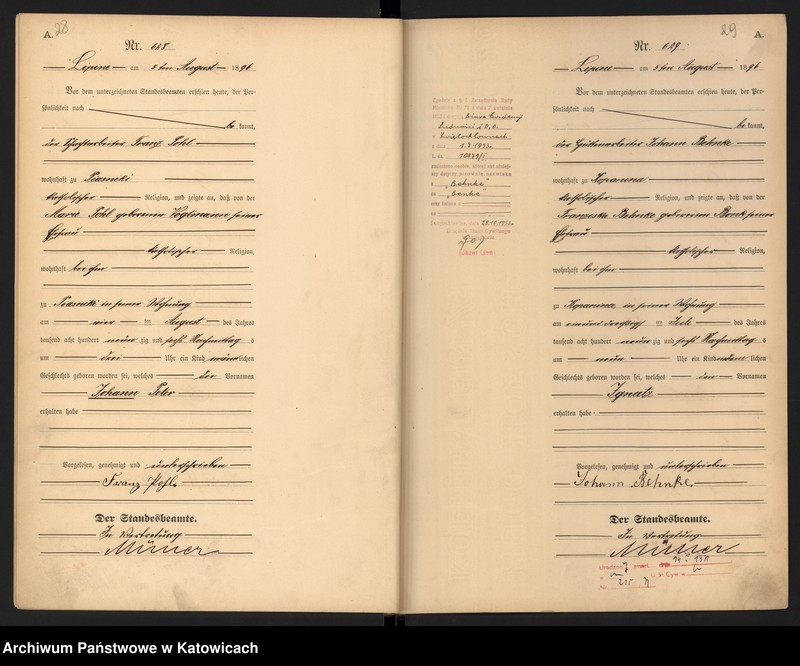 A. 28
Nr. 628
Lipine am 5ten August 1896
Vor dem unterzeichneten Standesbeamten erschien heute, der Per-
sönlichkeit nach
be kannt,
der Franz Pohl
wohnhaft zu Piasniki
katholischer Religion, und zeigte an, daß von der
Marie Pohl geborenen seiner
Ehefrau
katholischer Religion,
wohnhaft bei ihm
zu Piasniki in seiner Wohnung
am vier ten August des Jahres
tausend acht hundert neun zig und sechs Nachmittag s
um drei Uhr ein Kind männlichen
Geschlechts geboren worden sei, welches die Vornamen
Johann Peter
erhalten habe
Vorgelesen, genehmigt und unterschrieben
Franz Pohl.
Der Standesbeamte.
In Vertretung
Müller
Zgodnie z
Biura Ewidencji
Ludności
w Świętochłowicach
z dnia 1.7.1933r.
L. dz. 10879/I
pisownię nazwiska
z „Behnke”
na „Benka”
29.10.1933r.
29 A.
Nr. 629
Lipine am 5ten August 1896
Vor dem unterzeichneten Standesbeamten erschien heute, der Per-
sönlichkeit nach
be kannt,
der Hüttenarbeiter Johann Behnke
wohnhaft zu Kopanina
katholischer Religion, und zeigte an, daß von der
Franziska Behnke geborenen seiner
Ehefrau
katholischer Religion,
wohnhaft bei ihm
zu Kopanina in seiner Wohnung
am ein und dreißig ten Juli des Jahres
tausend acht hundert neun zig und sechs Nachmittag s
um neun Uhr ein Kind männ lichen
Geschlechts geboren worden sei, welches den Vornamen
Ignatz
erhalten habe
Vorgelesen, genehmigt und unterschrieben
Johann Behnke.
Der Standesbeamte.
In Vertretung
Müller
Archiwum Państwowe w Katowicach